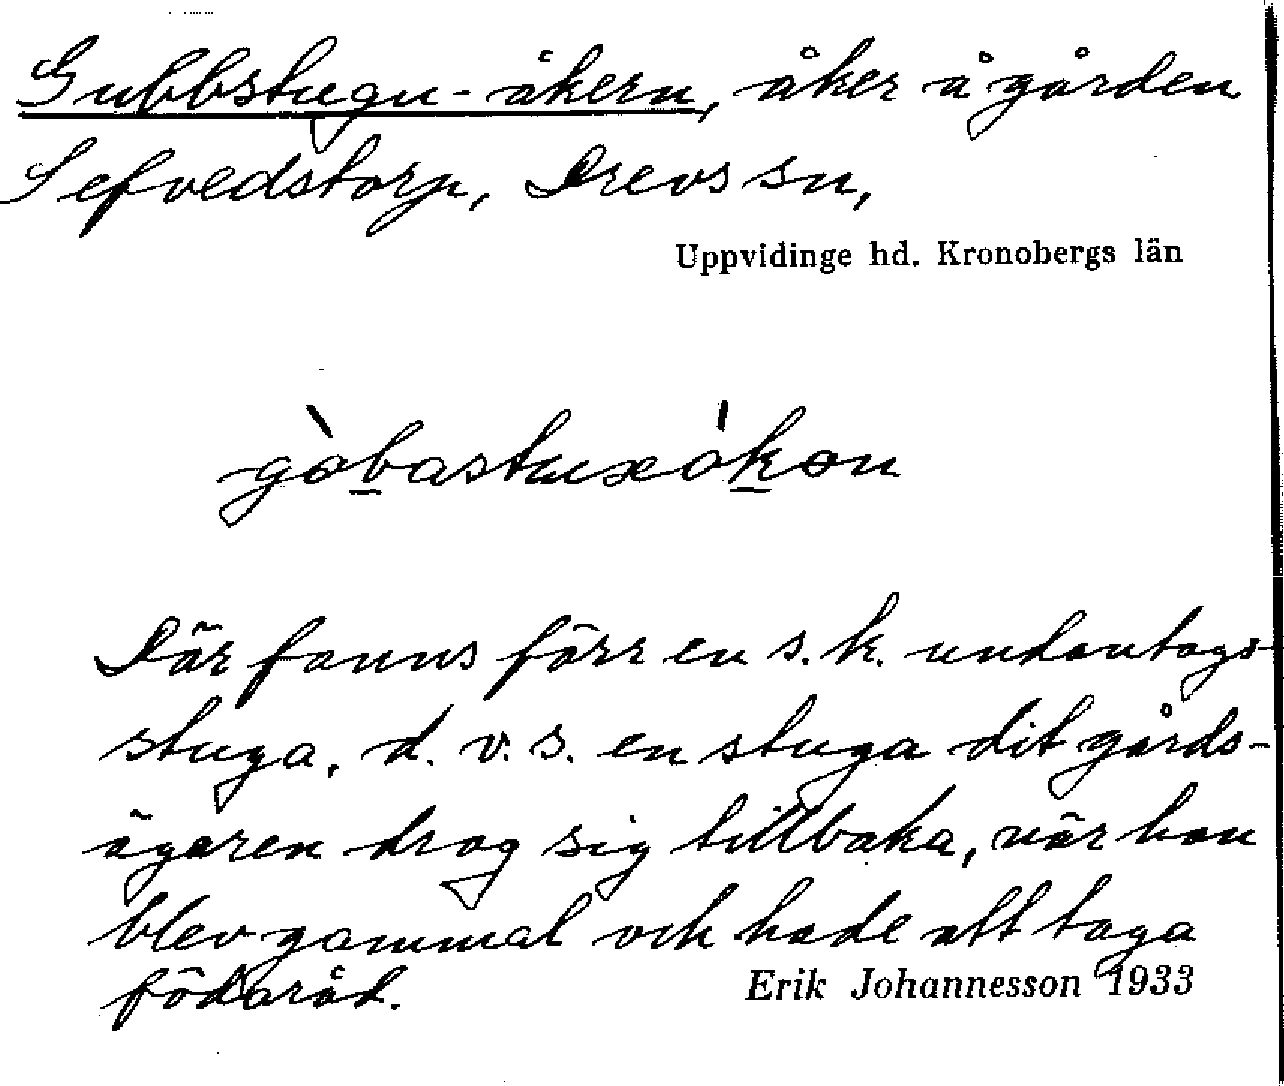 Gubbstugu-åkern, åker å gården
Sefvedstorp, Drevs sn,
Uppvidinge hd. Kronobergs län
gòbastuxókon
Där fanns förr en s.k. undantags-
stuga, d. v. s. en stuga dit gårds-
ägaren drog sig tillbaka, när han
blev gammal och hade att taga
födoråd.
Erik Johannesson 1933